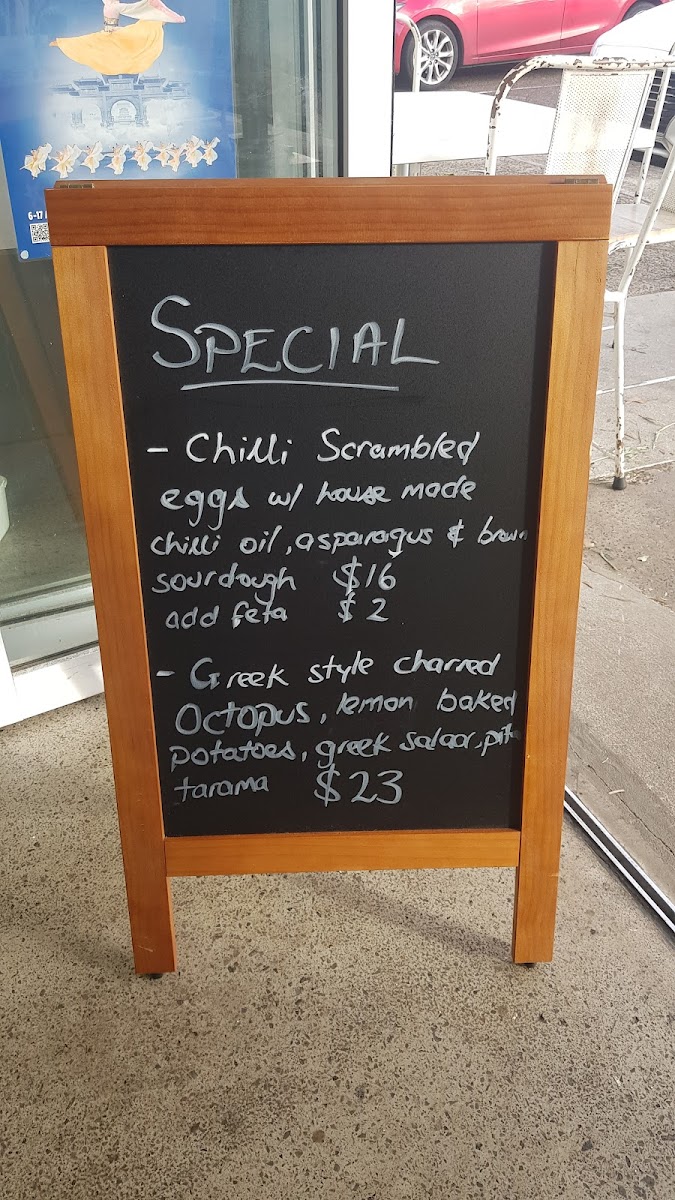 6-17
SPECIAL
- Chilli Scrambled
eggs w/ house made
chilli oil, asparagus & brown
sourdough $16
add feta $2
- Greek style charred
Octopus, lemon baked
potatoes, greek salad, pita
tarama $23